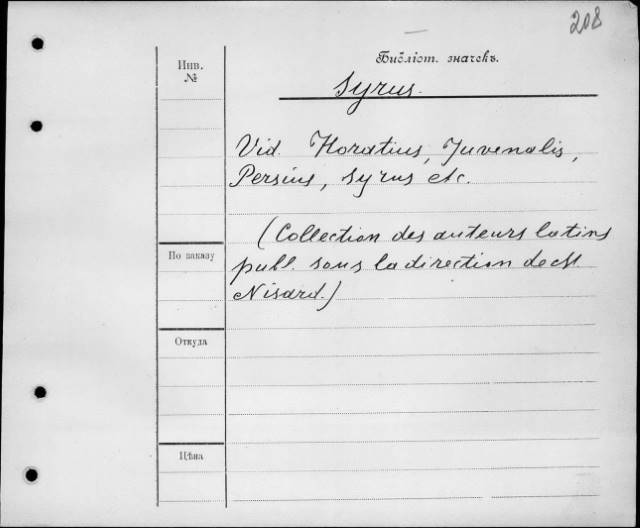 208
Инв.
№
Библіот. значекъ.
Syrus.
Vid. Horatius, Juvenalis,
Persius, Syrus etc.
(Collection des auteurs latins
По заказу
publ. sous la direction de M.
Nisard.)
Откуда
Цѣна